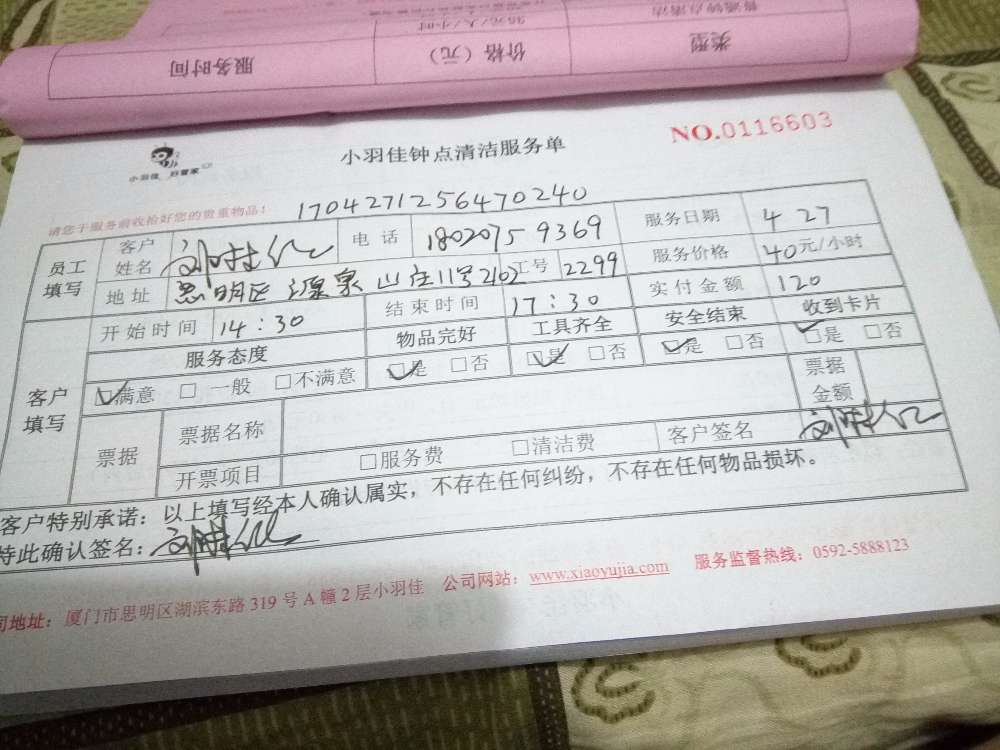 35元/人/小时
普通钟点清洁
服务时间
价格（元）
类型
小羽佳 好管家
小羽佳钟点清洁服务单
NO.0116603
请您于服务前收拾好您的贵重物品！
1704271256470240
员工填写
客户姓名
电话 18020759369
服务日期 4 27
地址 思明区源泉山庄11号2102
工号 2299
服务价格 40元/小时
开始时间 14:30
结束时间 17:30
实付金额 120
客户填写
服务态度 物品完好 工具齐全 安全结束 收到卡片
☑满意 □一般 □不满意 ☑是 □否 ☑是 □否 ☑是 □否 ☑是 □否
票据
票据名称
票据金额
开票项目 □服务费 □清洁费 客户签名
客户特别承诺：以上填写经本人确认属实，不存在任何纠纷，不存在任何物品损坏。
特此确认签名：
司地址：厦门市思明区湖滨东路319号A幢2层小羽佳 公司网站：www.xiaoyujia.com 服务监督热线：0592-5888123